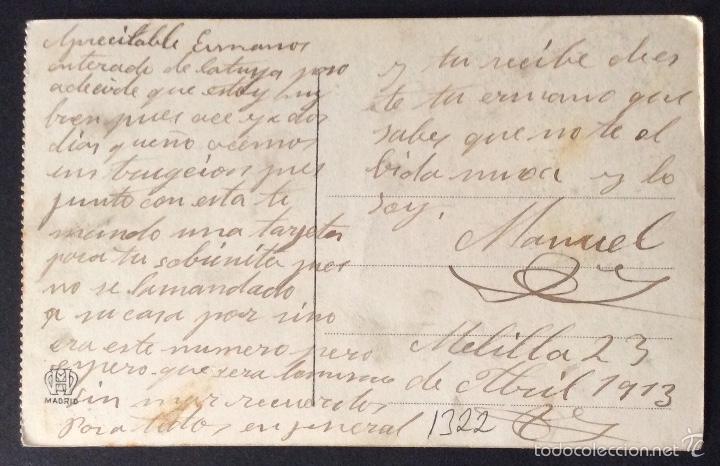 Aprecitable Ermanos
enterado de latuya paso
adecirde que estoy muy
bien pues ace ya dos
dias queño acemos
instrugcion pues
junto con esta te
mando una targeta
para tu sobrinita pues
no se lamandado
a su casa por sino
era este numero pero
espero que sera lomismo
Sin mas recuerdos
para todos en general
MADRID
y tu recibe de es
te tu ermano que
sabes que no te ol
bida nunca y lo
soy.
Manuel
Melilla 23
de Abril 1913
1322
todocoleccion.net